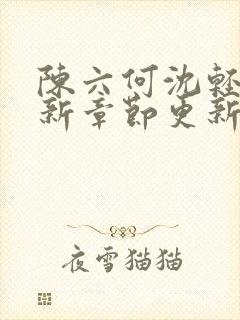 陳六何沈輕
新章節更新
夜雪猫猫